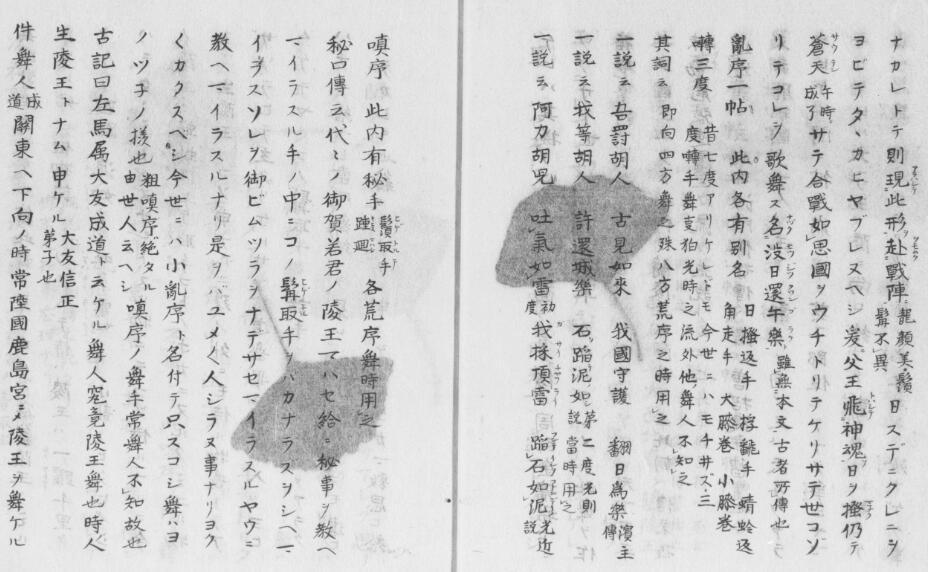 ナカレトテ則現此形赴戰陣ニ龍顔美鬚髯不異日ステニクレニシ
ヨビテタヽカヒヤブレヌヘシ爰父王飛神魂日ヲ搔仍テ
蒼天成午時了サテ合戰如思國ヲウチトリテケリサテ世コソ
リテコレヲ歌舞ス名没日還午樂雖無本文古者所傳也
亂序一帖 此内各有别名 日搔返手 桴飜手 蜻蛉返 角走手 大膝巻 小膝巻
囀三度 昔七度アリケレトモ今世ニハモチ井ズ三度囀手舞
其詞云 即向四方舞之殊八方荒序之時用之
一説云 吾罸胡人 古見如來 我國守護 翻日爲樂
一説云 我等胡人 許還城樂 石蹈泥如 第二度光則説當時用之
一説云 阿力胡兒 吐氣如雷初度 我採頂雷 蹈石如泥光近説
嗔序 此内有秘手 鬚取手 各荒序舞時用之
秘口傳云代々ノ御賀若君ノ陵王マハセ給ニ秘事ヲ教ヘ
マイラスル手ノ中ニコノ髯取手ヲハカナラスヲシヘマ
イラスソレヲ御ビムツラヲナテサセマイラスルヤウニ
教ヘマイラスルナリ是ヲバユメく人シラヌ事ナリヨク
くカクスベシ今世ニハ小亂序ト名付テ只スコシ舞ハヨ
ノツ子ノ様也 粗嗔序絶タル由世人云ヘシ 嗔序ノ舞手常舞人不知故也
古記曰左馬属大友成道ト云ケル舞人究竟陵王舞也時人
生陵王トナム申ケル 大友信正弟子也
件舞人成道關東ヘ下向ノ時常陸國鹿島宮ニ陵王ヲ舞ケル